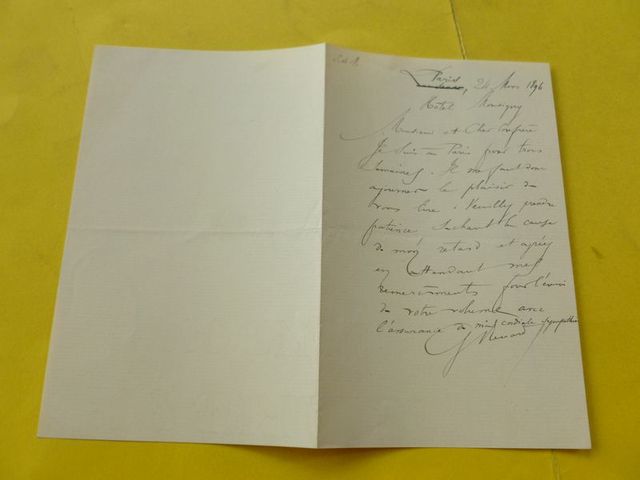 Paris, 24 Mars 1896
Hôtel Monsigny
Monsieur et Cher Confrère
Je suis à Paris pour trois
semaines. Il me faut donc
ajourner le plaisir de
vous lire. Veuillez prendre
patience sachant la cause
de mon retard et agréez
en attendant mes
remerciments pour l'envoi
de votre volume avec
l'assurance de mes cordiale sympathie